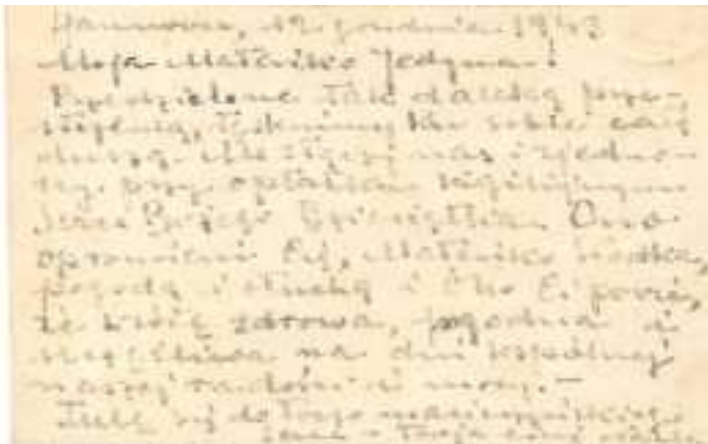 Hannover, 12 grudnia 1943
Moja Mateńko Jedyna!
Rozdzielone tak daleką prze-
strzenią, tęknimy ku sobie całą
duszą. Ale złączy nas i zjedno-
czy przy opłatku wigilijnym
Serce Bożego Dzieciątka. Ono
opromieni Cię, Mateńko słodka,
pogodą i otuchą i Ono Ci powie,
że wrócę zdrowa, pogodna i
szczęśliwa na dni wspólnej
naszej radości i mocy.-
Tulę się do Twego macierzyńskiego
Twoja